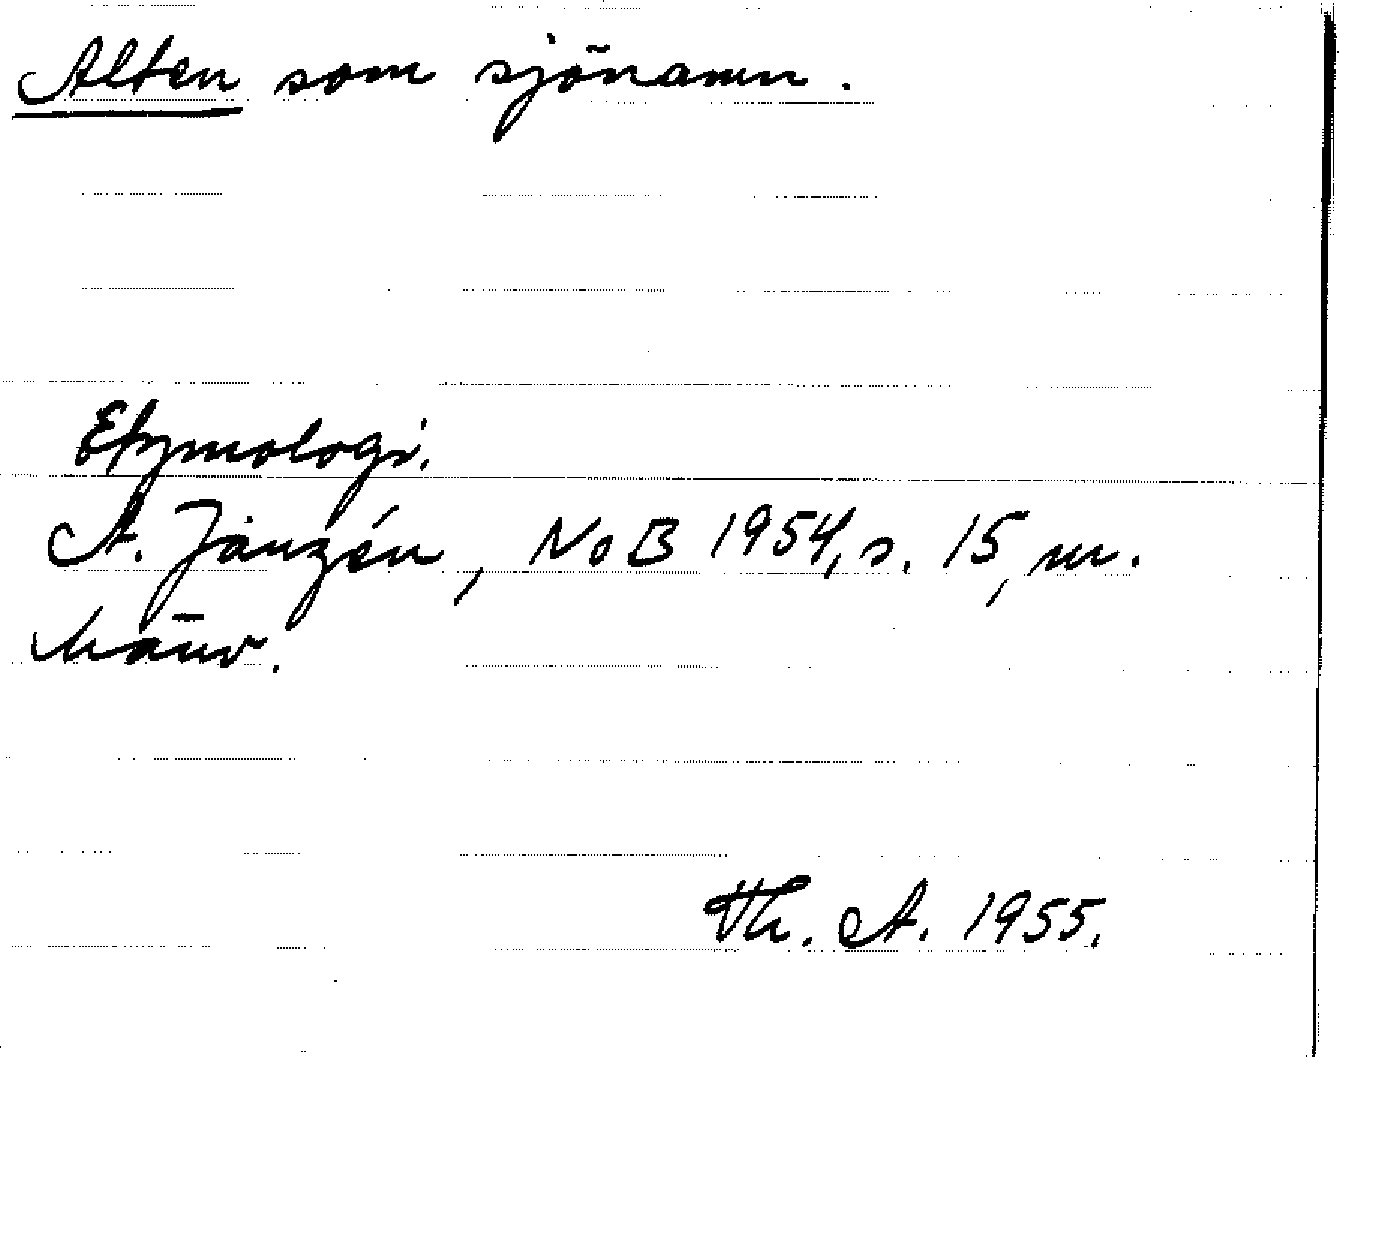 Alten som sjönamn.
Etymologi.
A. Janzén, NoB 1954, s. 15, m.
hänv.
Th. A. 1955.